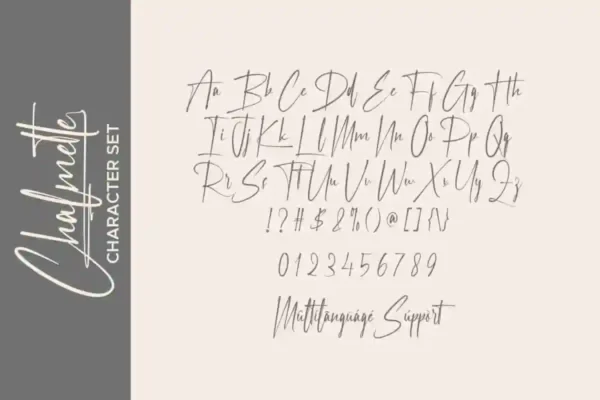 Chalmette
CHARACTER SET
Aa Bb Cc Dd Ee Ff Gg Hh
Ii Jj Kk Ll Mm Nn Oo Pp Qq
Rr Ss Tt Uu Vv Ww Xx Yy Zz
!?#$&%()@[]{}
0123456789
Múltílánguágé Súppórt